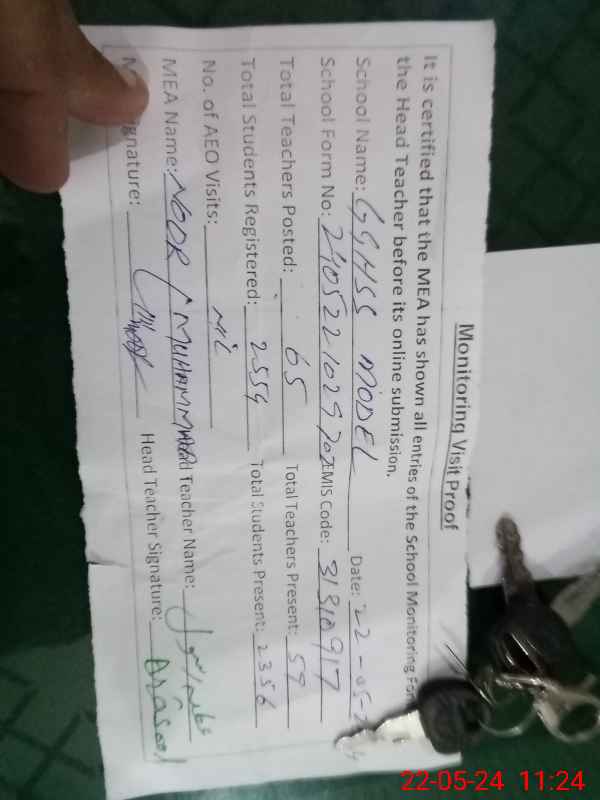 Monitoring Visit Proof
It is certified that the MEA has shown all entries of the School Monitoring For
the Head Teacher before its online submission.
School Name: GGHSS MODEL Date: 22-05-
School Form No: EMIS Code: 31310917
Total Teachers Posted: 65 Total Teachers Present: 59
Total Students Registered: 2559 Total Students Present: 2356
No. of AEO Visits: Nil
MEA Name: NOOR MUHAMMAD Teacher Name:
gnature: Head Teacher Signature:
22-05-24 11:24